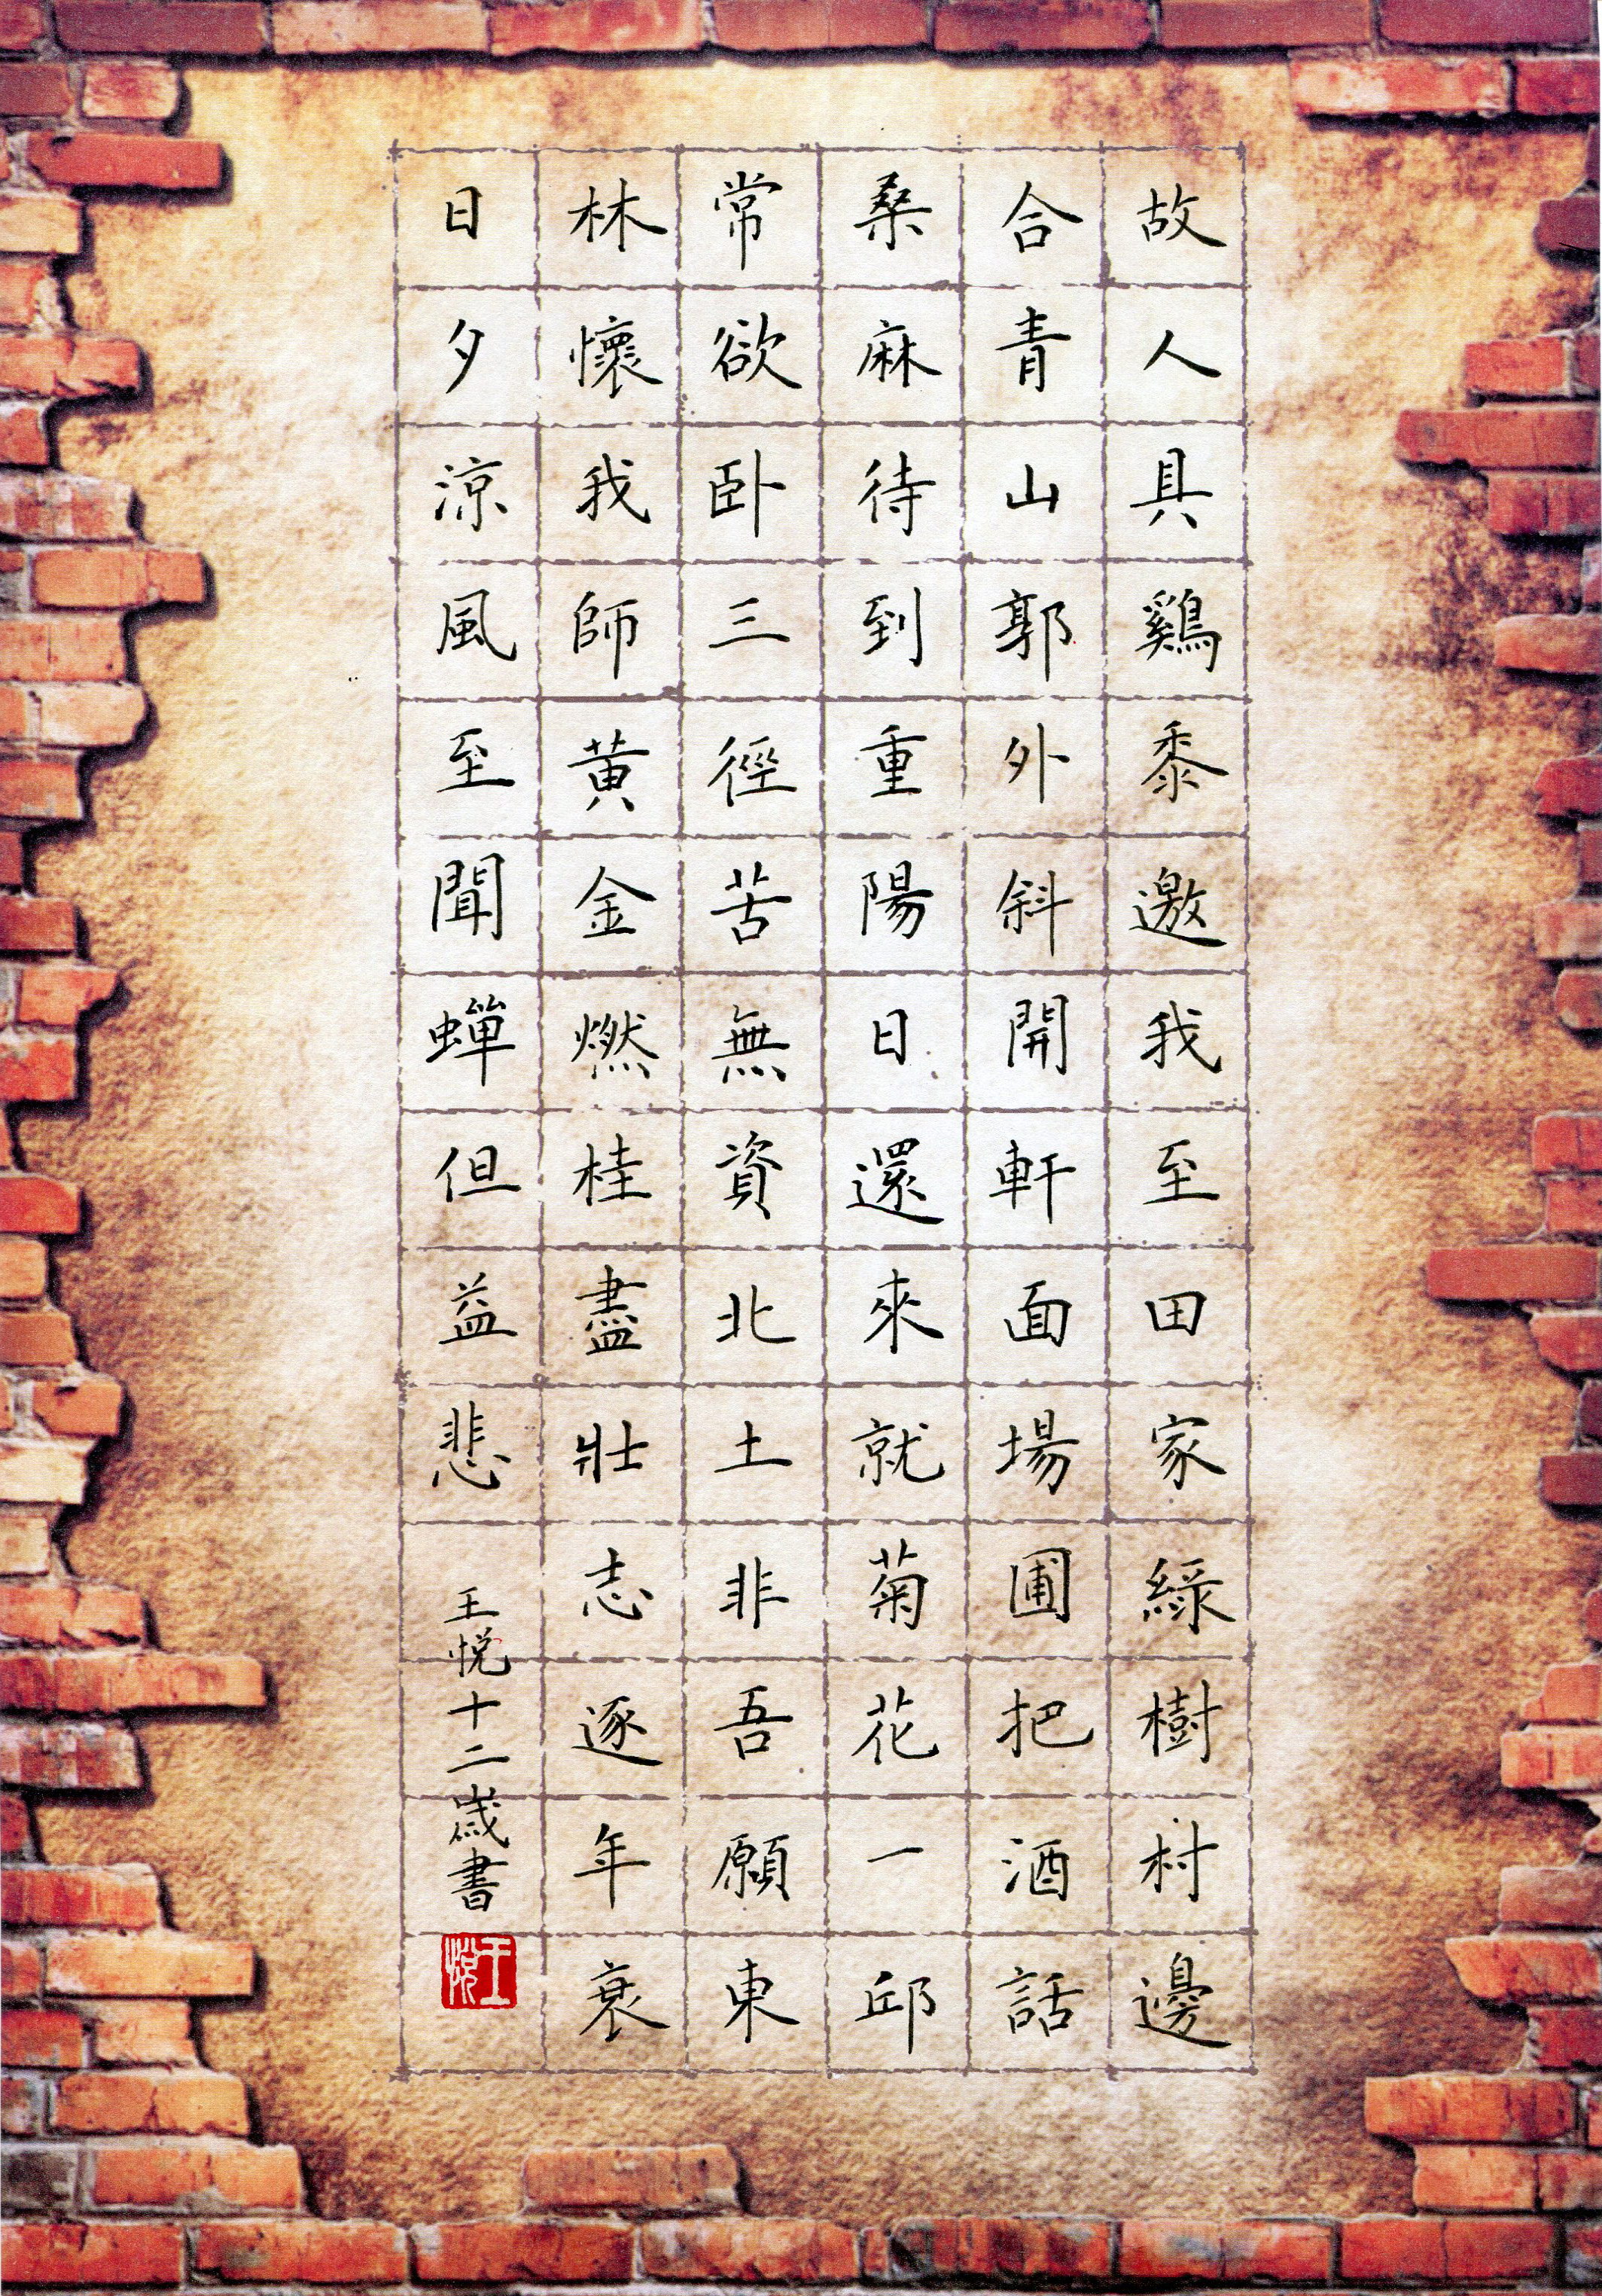 故人具鷄黍邀我至田家綠樹村邊
合青山郭外斜開軒面場圃把酒話
桑麻待到重陽日還來就菊花一邱
常欲卧三徑苦無資北土非吾願東
林懷我師黄金燃桂盡壯志逐年衰
日夕涼風至聞蟬但益悲
王悦十二歲書
王悦